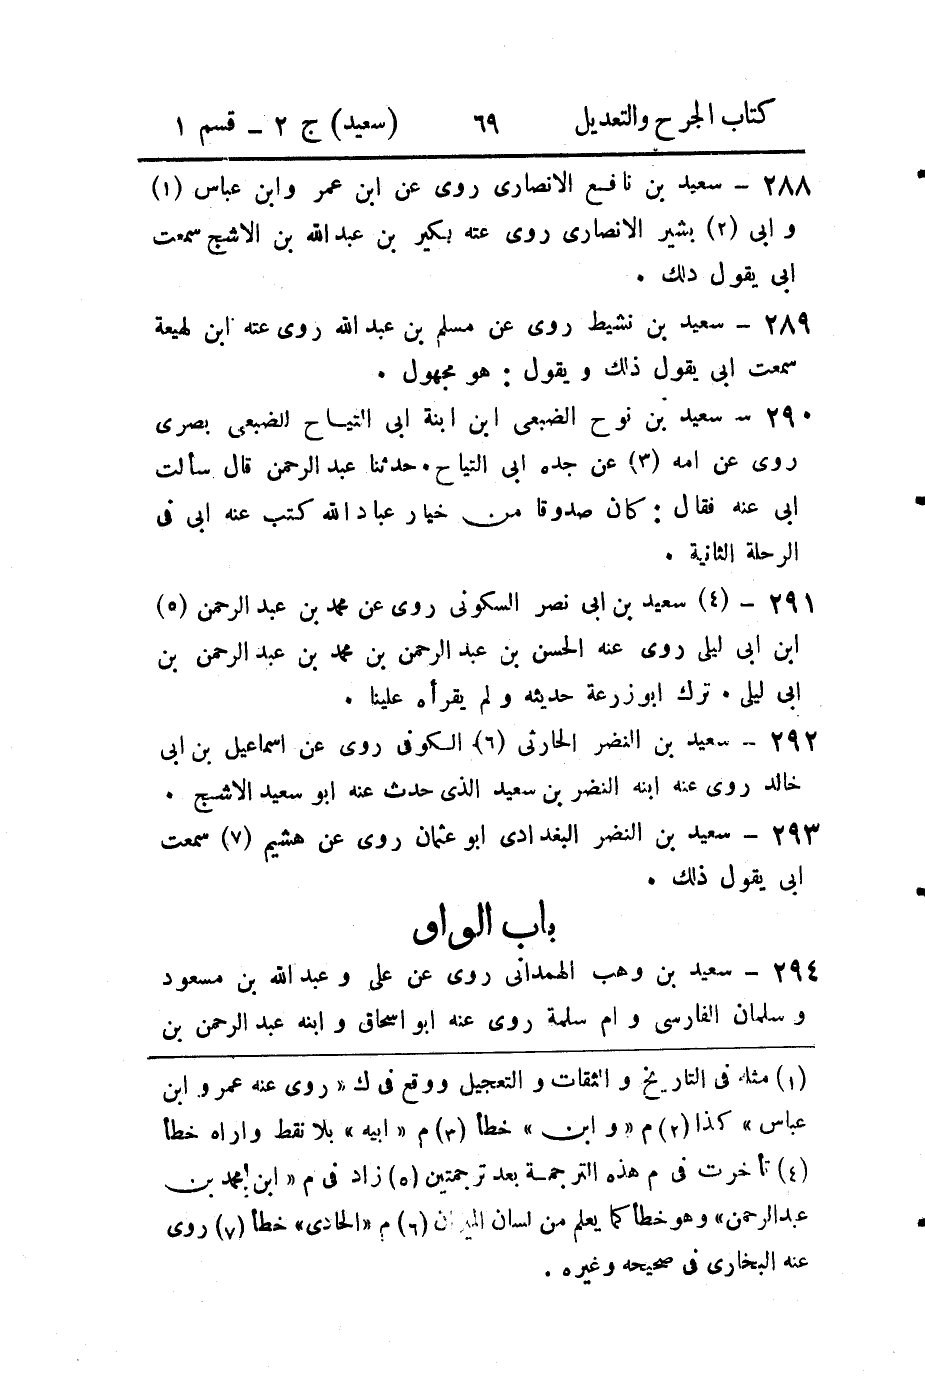 كتاب الجرح والتعديل ٦٩ (سعيد) ج ٢ - قسم ١
٢٨٨ - سعيد بن نافع الانصارى روى عن ابن عمر وابن عباس (١)
و ابى (٢) بشير الانصارى روى عنه بكير بن عبد الله بن الاشج سمعت
ابى يقول ذلك .
٢٨٩ - سعيد بن نشيط روى عن مسلم بن عبد الله روى عنه ابن لهيعة
سمعت ابى يقول ذلك و يقول : هو مجهول .
٢٩٠ - سعيد بن نوح الضبعى ابن ابنة ابى التياح الضبعى بصرى
روى عن امه (٣) عن جده ابى التياح . حدثنا عبد الرحمن قال سألت
ابى عنه فقال : كان صدوقا من خيار عباد الله كتب عنه ابى فى
الرحلة الثانية .
٢٩١ - (٤) سعيد بن ابى نصر السكونى روى عن محمد بن عبد الرحمن (٥)
ابن ابى ليلى روى عنه الحسن بن عبد الرحمن بن محمد بن عبد الرحمن بن
ابى ليلى . ترك ابو زرعة حديثه و لم يقرأه علينا .
٢٩٢ - سعيد بن النضر الحارثى (٦) الكوفى روى عن اسماعيل بن ابى
خالد روى عنه ابنه النضر بن سعيد الذى حدث عنه ابو سعيد الاشج .
٢٩٣ - سعيد بن النضر البغدادى ابو عثمان روى عن هشيم (٧) سمعت
ابى يقول ذلك .
باب الواو
٢٩٤ - سعيد بن وهب الهمدانى روى عن على و عبد الله بن مسعود
و سلمان الفارسى و ام سلمة روى عنه ابو اسحاق و ابنه عبد الرحمن بن
(١) مثله فى التاريخ و الثقات و التعجيل ووقع فى ك « روى عنه عمر و ابن
عباس » كذا (٢) م « و ابن » خطأ (٣) م « ابيه » بلا نقط واراه خطأ
(٤) تأخرت فى م هذه الترجمة بعد ترجمتين (٥) زاد فى م « ابن محمد بن
عبد الرحمن » وهو خطأ كما يعلم من لسان الميزان (٦) م « الحادى » خطأ (٧) روى
عنه البخارى فى صحيحه وغيره .